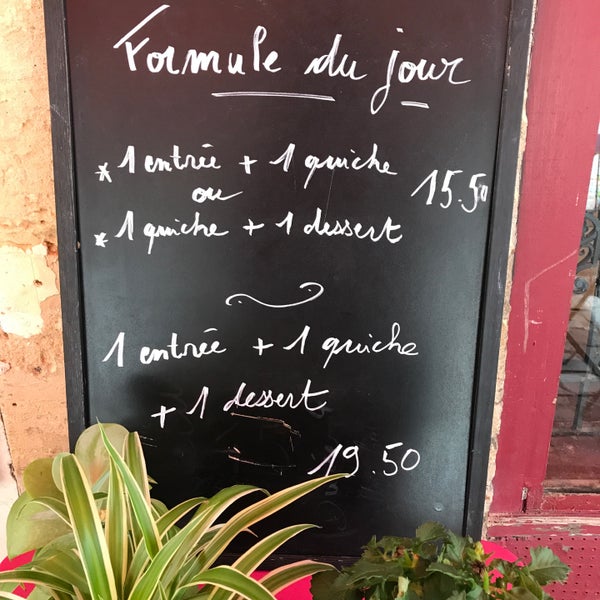 Formule du jour
* 1 entrée + 1 quiche
ou
15.50
* 1 quiche + 1 dessert
1 entrée + 1 quiche
+ 1 dessert
19.50